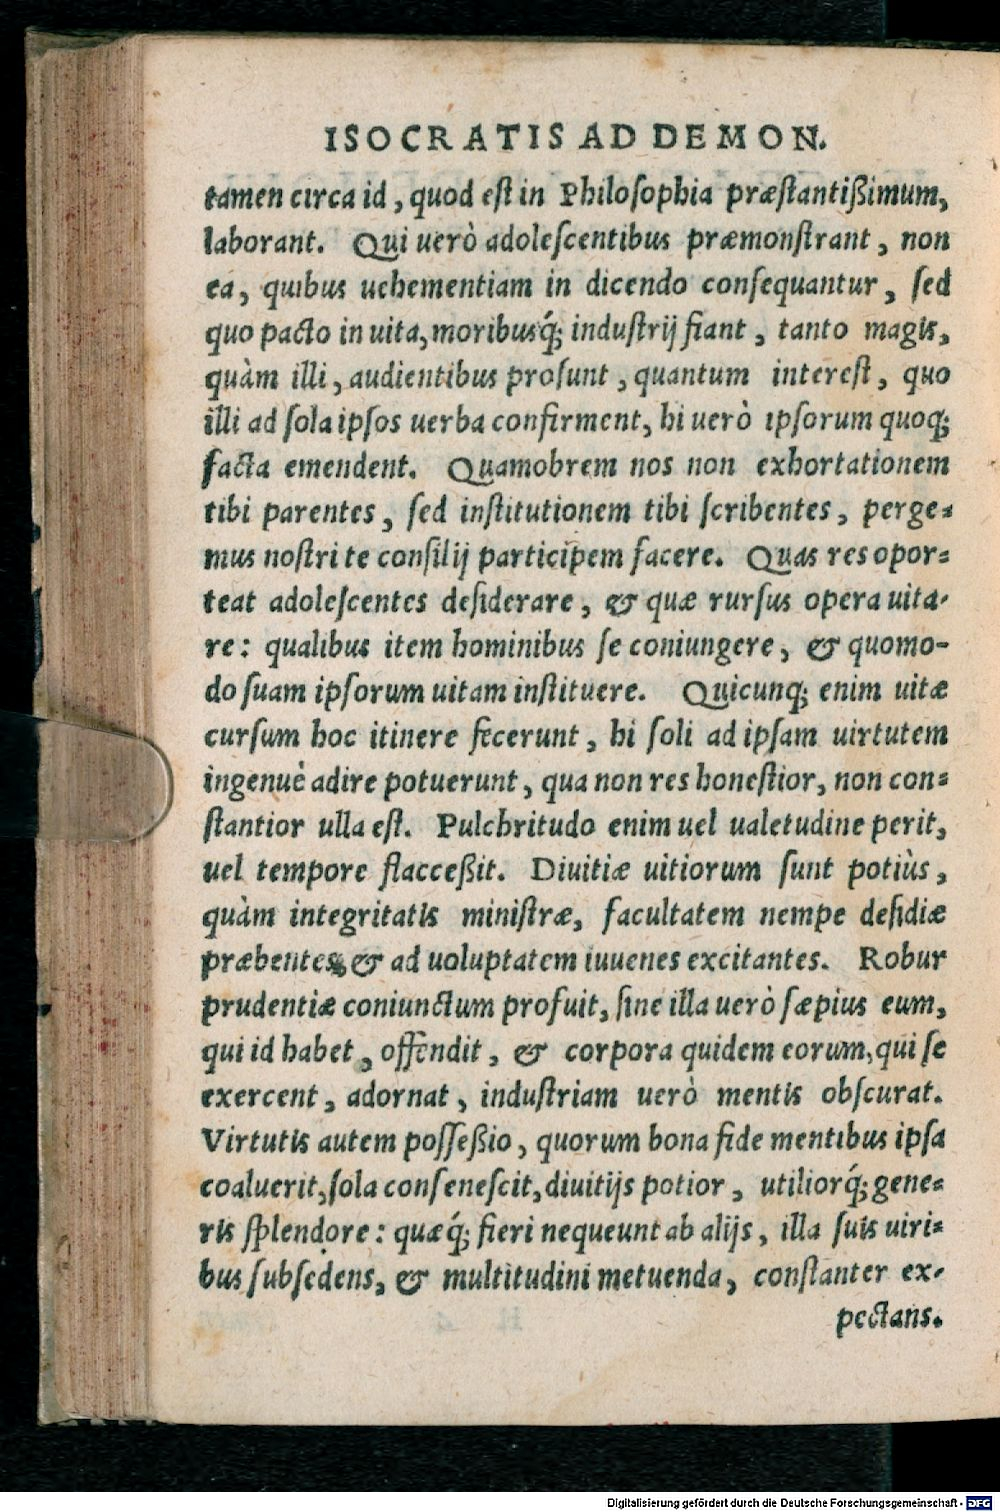 ISOCRATIS AD DEMON.
tamen circa id, quod est in Philosophia præstantißimum,
laborant. Qui uerò adolescentibus præmonstrant, non
ea, quibus uehementiam in dicendo consequantur, sed
quo pacto in uita, moribusq́; industrij fiant, tanto magis,
quàm illi, audientibus prosunt, quantum interest, quo
illi ad sola ipsos uerba confirment, hi uerò ipsorum quoq;
facta emendent. Quamobrem nos non exhortationem
tibi parentes, sed institutionem tibi scribentes, perge=
mus nostri te consilij participem facere. Quas res opor=
teat adolescentes desiderare, & quæ rursus opera uita-
re: qualibus item hominibus se coniungere, & quomo-
do suam ipsorum uitam instituere. Quicunq; enim uitæ
cursum hoc itinere fecerunt, hi soli ad ipsam uirtutem
ingenuè adire potuerunt, qua non res honestior, non con=
stantior ulla est. Pulchritudo enim uel ualetudine perit,
uel tempore flacceßit. Diuitiæ uitiorum sunt potiùs,
quàm integritatis ministræ, facultatem nempe desidiæ
præbentes, & ad uoluptatem iuuenes excitantes. Robur
prudentiæ coniunctum profuit, sine illa uerò sæpius eum,
qui id habet, offendit, & corpora quidem eorum, qui se
exercent, adornat, industriam uerò mentis obscurat.
Virtutis autem posseßio, quorum bona fide mentibus ipsa
coaluerit, sola consenescit, diuitijs potior, utiliorq́; gene=
ris splendore: quæq́; fieri nequeunt ab alijs, illa suis uiri=
bus subsedens, & multitudini metuenda, constanter ex-
pectans.
Digitalisierung gefördert durch die Deutsche Forschungsgemeinschaft - DFG